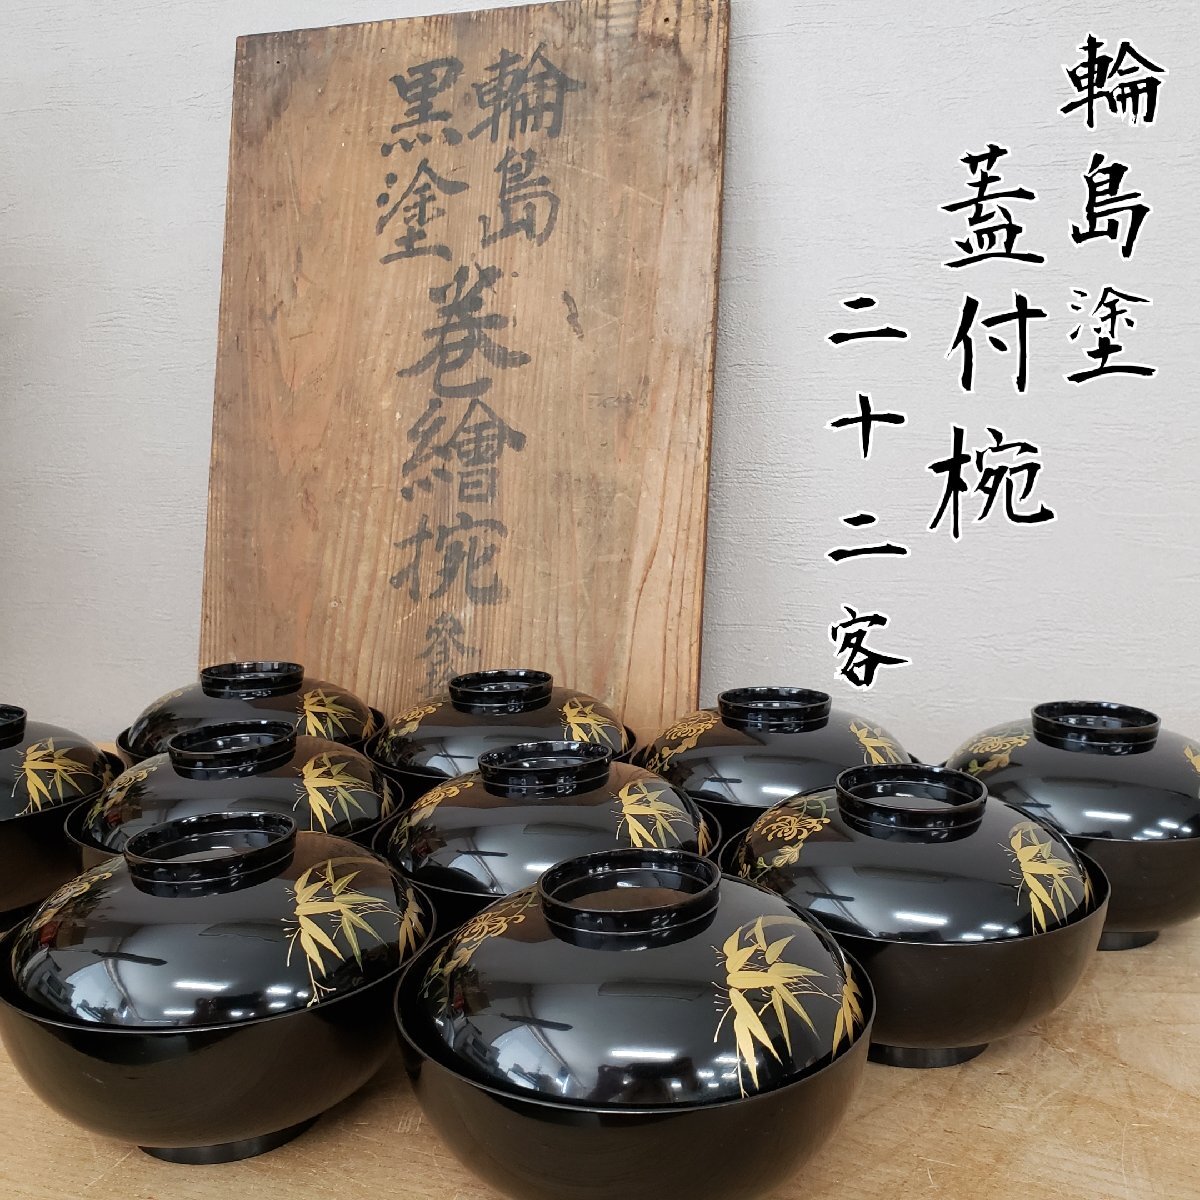 輪島塗
蓋付椀
二十二客
輪島
黒塗
巻繪椀